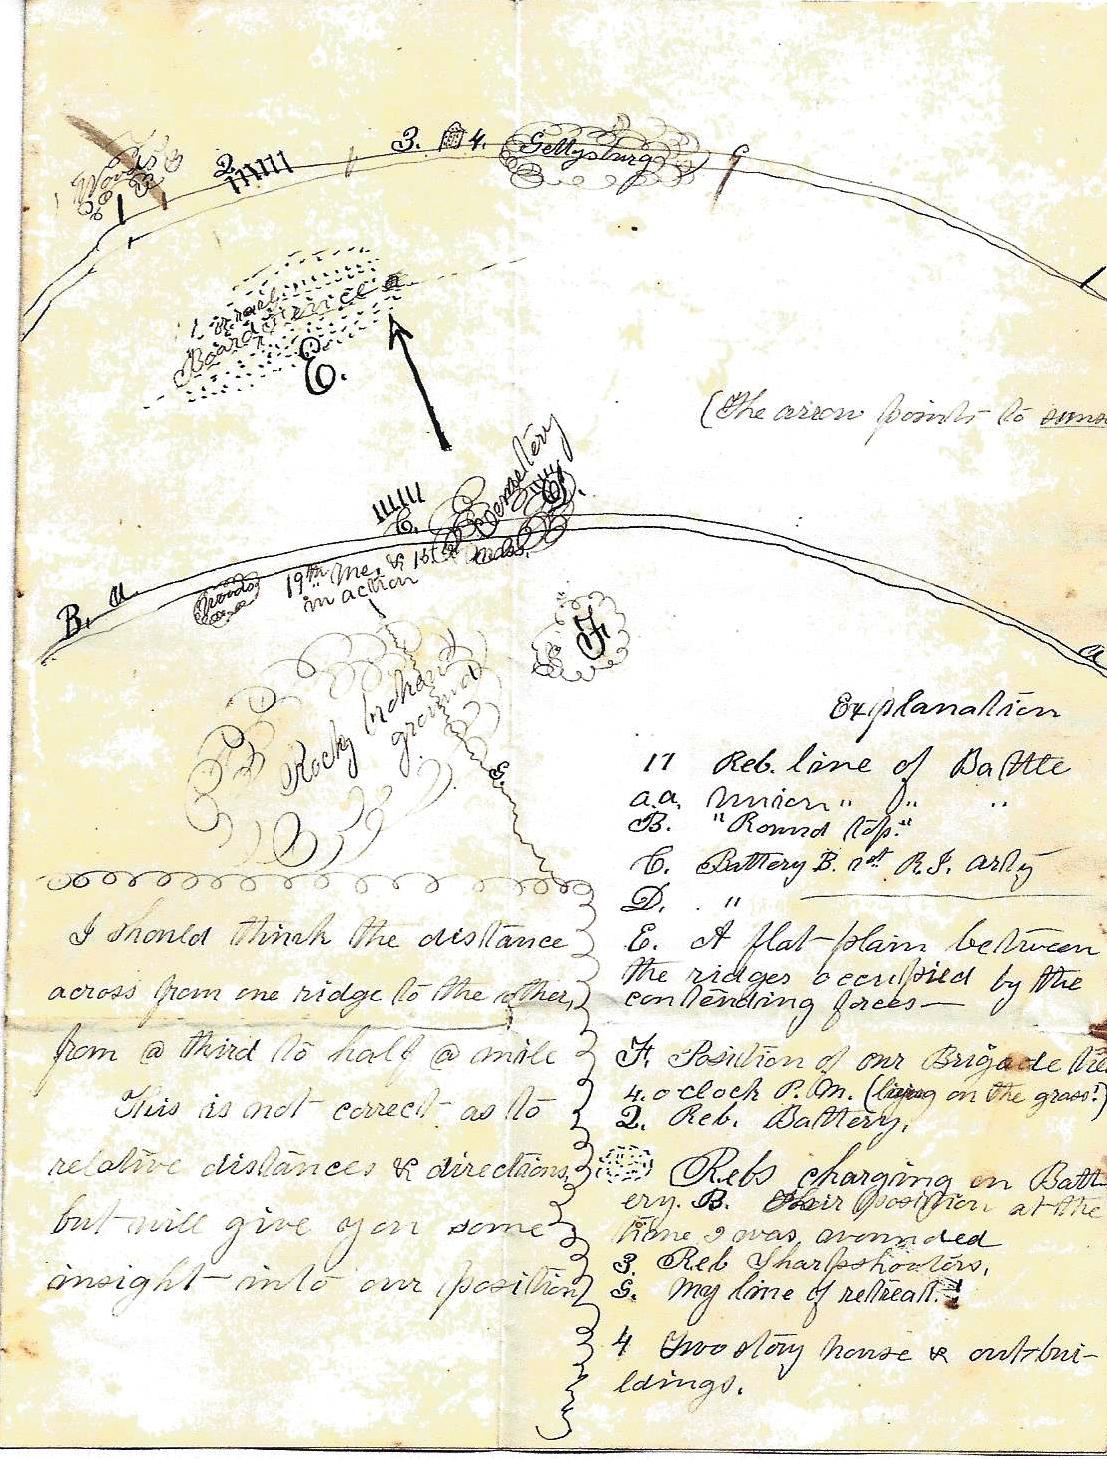 3. 4. Gettysburg
2.
Woods
Board fence
E.
(The arrow points to
Cemetery
C.
19th Me. & 1st
Mass.
in action
Woods
B. a
a
F.
Rocky Orchard
ground
G.
Explanation
11 Reb. line of Battle
a.a. Union " " "
B. "Round top."
C. Battery B. 1st R.I. arty
D. "
E. A flat plain between
the ridges occupied by the
contending forces—
F. Position of our Brigade
4. o'clock P.M. (lying on the grass.)
2. Reb. Battery.
Rebs charging on Batt-
ery. B. Their position at the
time I was wounded
3. Reb Sharpshooters.
G. My line of retreat.
4 Two story house & out-bui-
ldings.
I should think the distance
across from one ridge to the other,
from @ third to half @ mile
This is not correct as to
relative distances & directions,
but will give you some
insight into our position